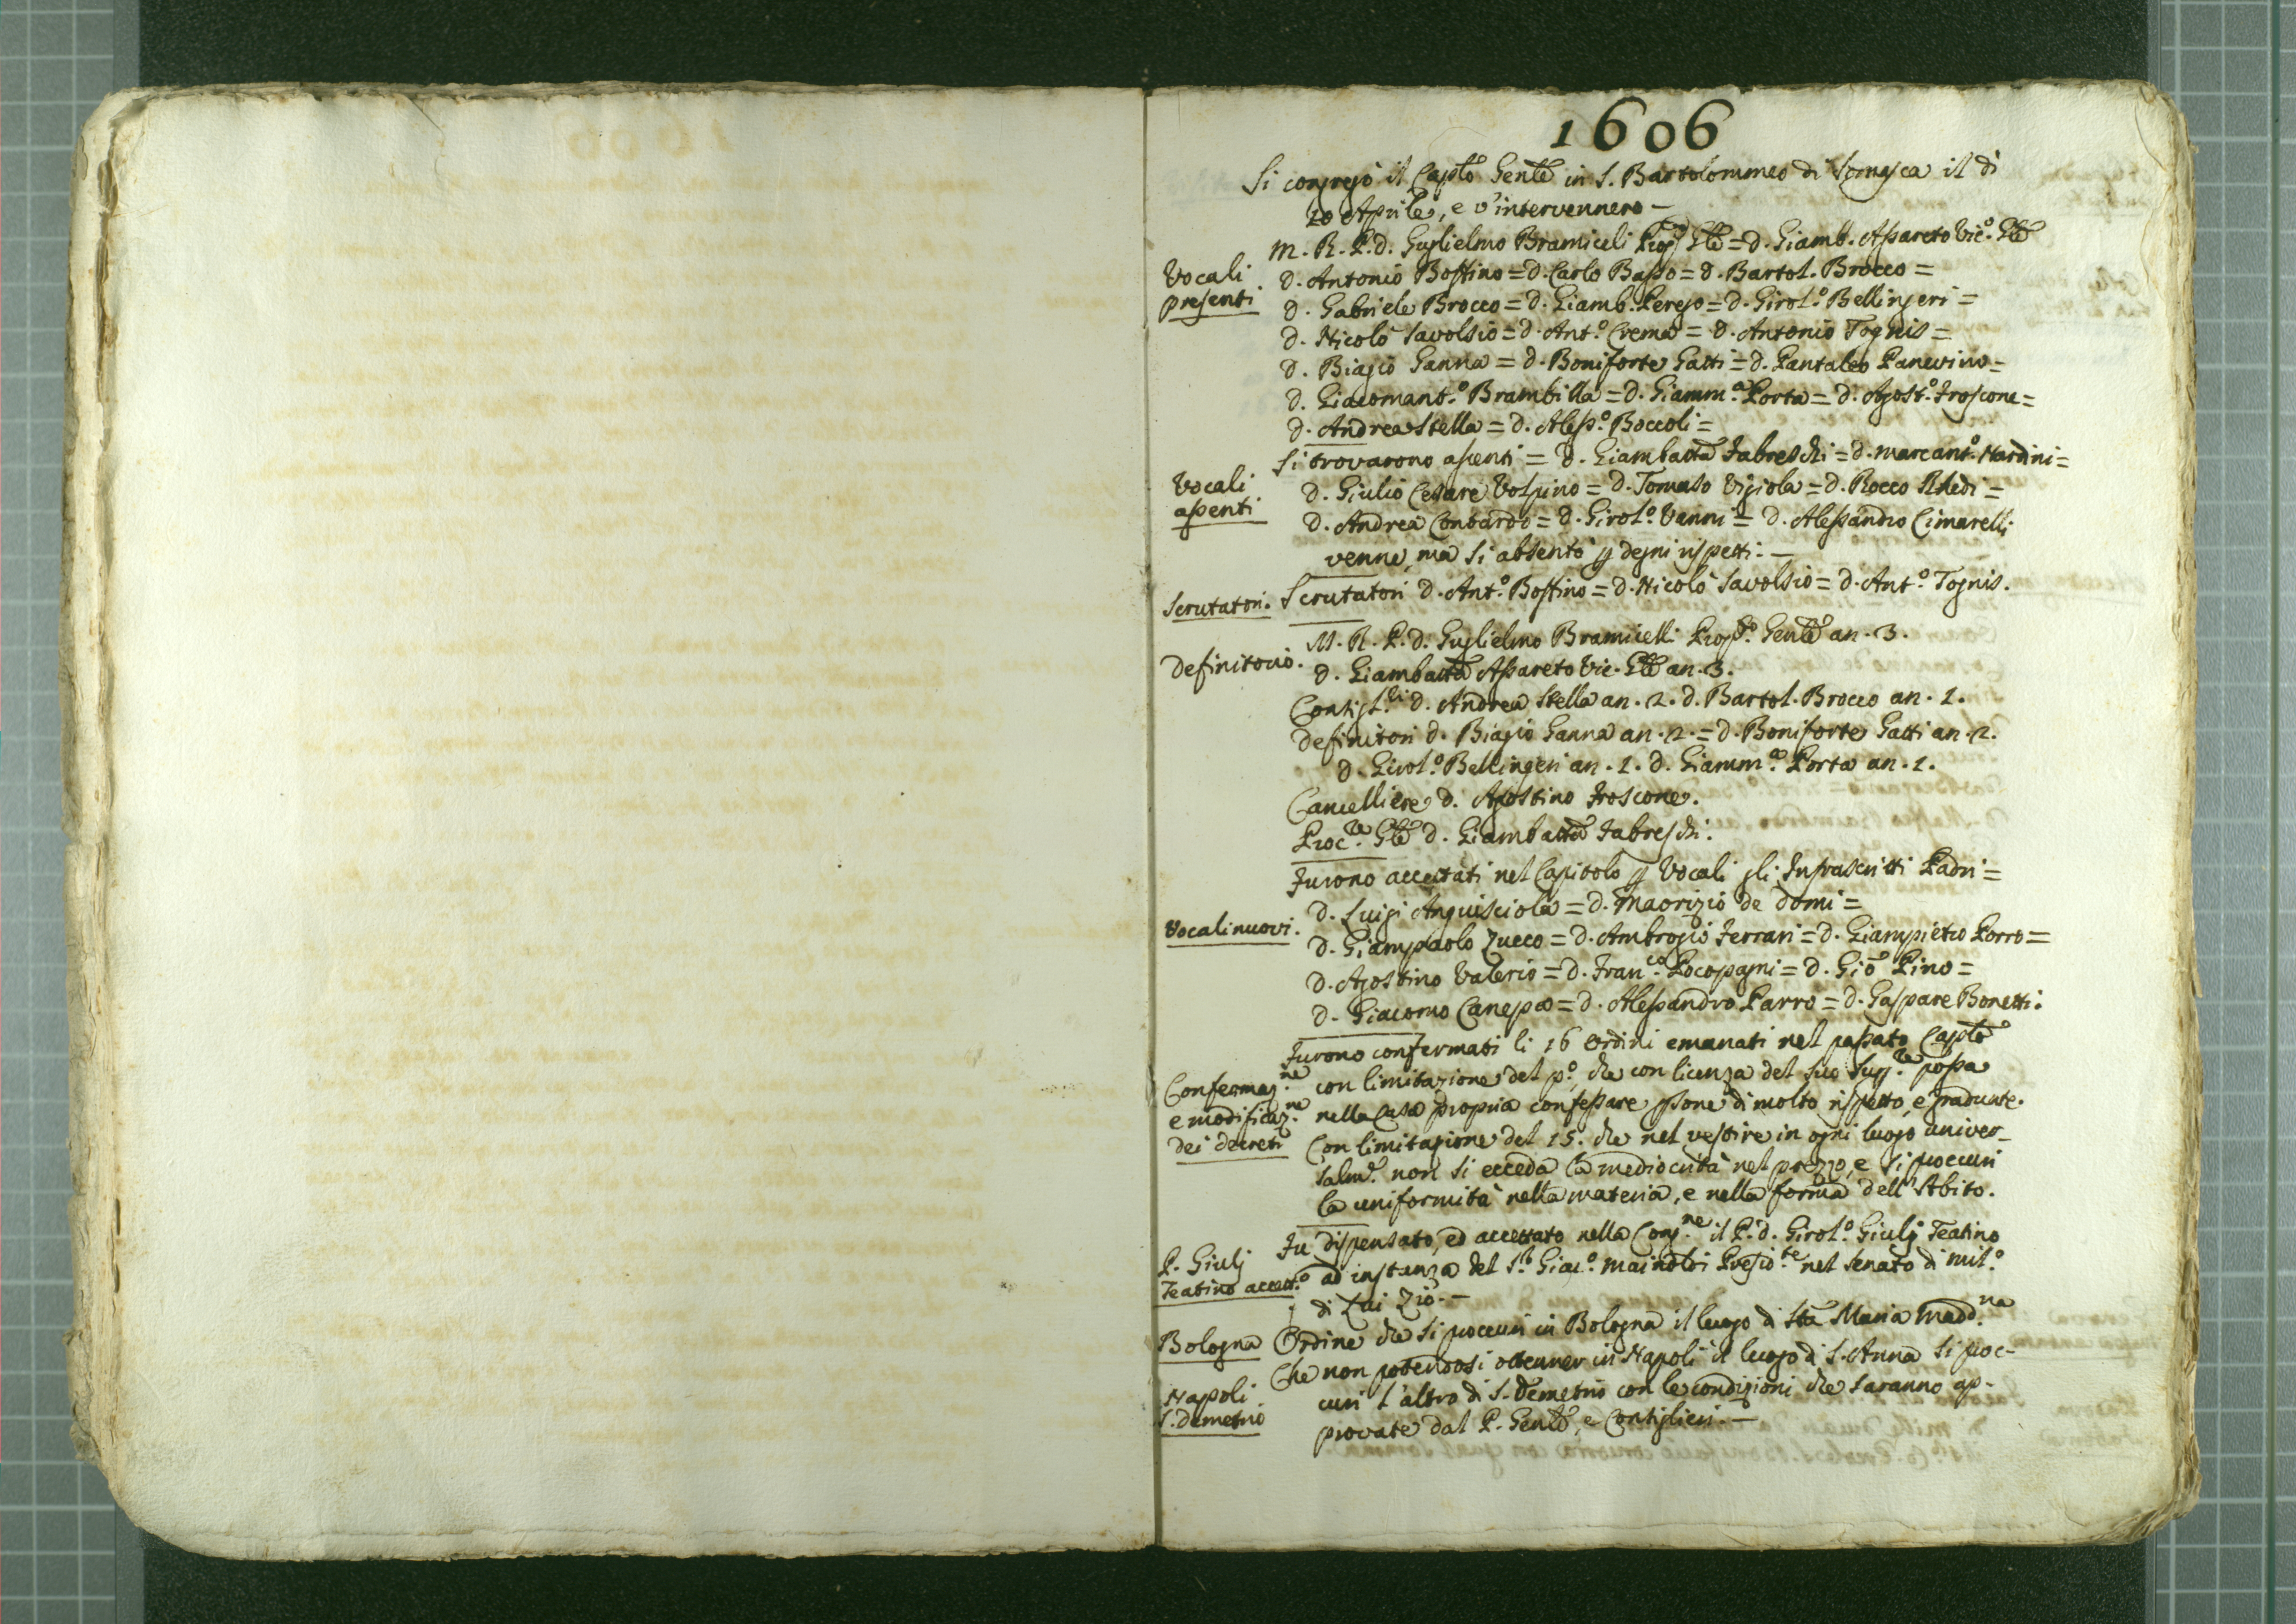 1606
Si congregò il Caplo Genle in S. Bartolommeo di Somasca il dì
10 Aprile, e v'intervennero —
Vocali presenti.
M. R. P. d. Guglielmo Bramicelli Prop. Gle = d. Giamb. Assareto Vic.º Gle
d. Antonio Bossino = d. Carlo Basso = d. Bartol. Brocco =
d. Gabriele Brocco = d. Giamb. Perego = d. Girol.º Bellingeri =
d. Nicolò Savolsio = d. Ant.º Crema = d. Antonio Tognis =
d. Biagio Ganna = d. Boniforte Gatti = d. Pantaleo Panevino =
d. Giacomant.º Brambilla = d. Giamm.ª Porta = d. Agost.º Froscone =
d. Andrea Stella = d. Aless.º Boccoli =
Vocali assenti.
Si trovarono assenti = d. Giambatta Fabreschi = d. Marcant.º Nardini =
d. Giulio Cesare Volpino = d. Tomaso Vigiola = d. Rocco Rhedi =
d. Andrea Conbardo = d. Girol.º Vanni = d. Alessandro Cimarelli
venne, ma si absentò p degni rispetti. —
Scrutatori.
Scrutatori d. Ant.º Bossino = d. Nicolò Savolsio = d. Ant.º Tognis.
Definitorio.
M. R. P. d. Guglielmo Bramicelli Prop.º Genle an. 3.
d. Giambatta Assareto Vic. Gle an. 3.
Consigl.ri d. Andrea Stella an. 2. d. Bartol. Brocco an. 1.
Definitori d. Biagio Ganna an. 2. = d. Boniforte Gatti an. 2.
d. Girol.º Bellingeri an. 1. d. Giamm.ª Porta an. 1.
Cancelliere d. Agostino Froscone.
Proc.re Gle d. Giambatta Fabreschi.
Furono accettati nel Capitolo p Vocali gli Infrascritti Padri =
Vocali nuovi.
d. Luigi Anguisciola = d. Maorizio de Domi =
d. Giampaolo Zucco = d. Ambrogio Ferrari = d. Giampietro Porro =
d. Agostino Valerio = d. Fran.co Pocopagni = d. Giõ Pino =
d. Giacomo Canepa = d. Alessandro Parro = d. Gaspare Bonetti.
Confermaz.ne e modificaz.ne dei decreti
Furono confermati li 16 Ordini emanati nel passato Caplo
con limitazione del p.º, che con licenza del suo Sup.re possa
nella Casa propria confessare psone di molto rispetto, e graduate.
Con limitazione del 15. che nel vestire in ogni luogo univer-
salm.e non si ecceda la mediocrità nel prezzo, e si procuri
la uniformità nella materia, e nella forma dell'Abito.
P. Giulj Teatino accett.º
Fu dispensato, ed accettato nella Cong.ne il P. d. Girol.º Giulj Teatino
ad instanza del S.r Giac.º Mainoldi Presid.te nel Senato di Mil.º
di Lui Zio. —
Bologna
Ordine che si procuri in Bologna il luogo di Sta Maria Madd.na
Napoli S. Demetrio
Che non potendosi ottener in Napoli il luogo di S. Anna si proc-
curi l'altro di S. Demetrio con le condizioni che saranno ap-
provate dal P. Genle, e Consiglieri. —